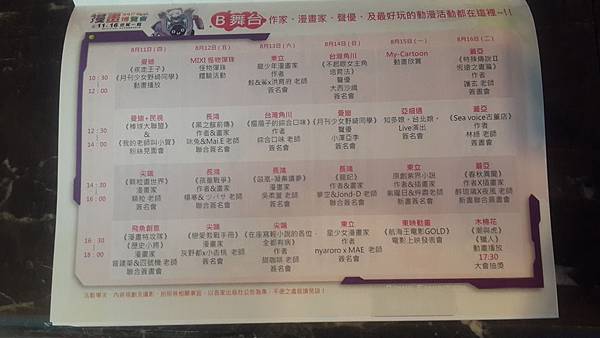 漫畫博覽會
8.11 16
B舞台 作家、漫畫家、聲優、及最好玩的動漫活動都在這裡~!!
8月11日(四) 8月12日(五) 8月13日(六) 8月14日(日) 8月15日(一) 8月16日(二)
10:30
|
12:00
曼迪
《疾走王子》
《月刊少女野崎同學》
動畫播放
MIXI 怪物彈珠
怪物彈珠
體驗活動
東立
龍少年漫畫家
作者
鮭&鯊x洪育府 老師
簽名會
台灣角川
《不起眼女主角
培育法》
聲優
大西沙織
簽名會
My-Cartoon
動畫放賞
蓋亞
《特殊傳說II
恆遠之晝篇》
作者
護玄 老師
簽書會
12:30
|
14:00
曼迪+民視
《棒球大聯盟》
&
《我的老師與小賀》
粉絲見面會
長鴻
《黑之蘇前傳》
作者&畫家
咪兔&Mai.E 老師
聯合簽名會
台灣角川
《瘤眉子的綜合口味》
作者
綜合口味 老師
簽名會
曼迪
《月刊少女野崎同學》
聲優
小澤亞李
簽名會
亞細通
知奈娘、台北娘、
Live演出
簽名會
蓋亞
《Sea voice古董店》
作者
林綠 老師
簽書會
14:30
|
16:00
尖端
《顆粒畫世界》
漫畫家
顆粒 老師
簽名會
長鴻
《孩童戰爭》
作者&畫家
楊寒& ツバサ 老師
聯合簽名會
長鴻
漫畫家
吳柔蓳 老師
簽名會
長鴻
《龍記》
作者&畫家
夢空&Jond-D 老師
聯合簽名會
東立
原創紫界小說
作者&插畫家
紫曜日&舛鹿 老師
新書簽名會
蓋亞
《春秋異聞》
作者X插畫家
醉琉璃X夜風 老師
新書聯合簽書會
16:30
|
18:00
飛魚創意
《漫畫特攻隊》
《歷史小將》
漫畫家
曾建華&四號機 老師
聯合簽書會
尖端
《戀愛教戰手冊》
漫畫家
灰野都x小杏桃 老師
簽名會
尖端
《在座寫輕小說的各位，
全都有病》
作者
甜咖啡 老師
簽名會
東立
星少女漫畫家
作者
nyaroro x MAE 老師
簽名會
東映動畫
《航海王電影GOLD》
電影上映發表會
木棉花
《潮與虎》
《獵人》
動畫播放
17:30
大會抽獎